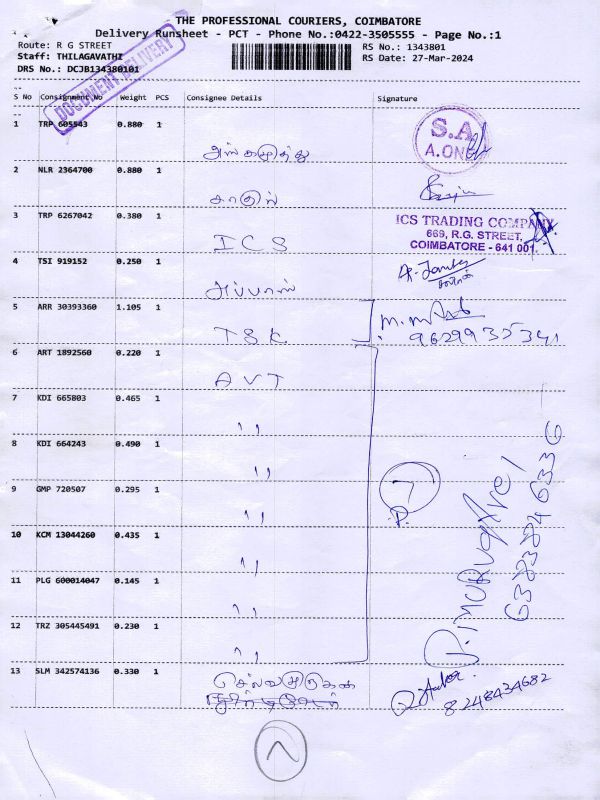 THE PROFESSIONAL COURIERS, COIMBATORE
Delivery Runsheet - PCT - Phone No.:0422-3505555 - Page No.:1
Route: R G STREET
RS No.: 1343801
Staff: THILAGAVATHI
RS Date: 27-Mar-2024
DRS No.: DCJB134380101
DOCUMENT DELIVERY
S No Consignment No Weight PCS Consignee Details Signature
1 TRP 605543 0.880 1
S.A
A.ONE
2 NLR 2364700 0.880 1
3 TRP 6267042 0.380 1 ICS
ICS TRADING COMPANY
669, R.G. STREET,
COIMBATORE - 641 001
4 TSI 919152 0.250 1 அப்பாஸ்
5 ARR 30393360 1.105 1 TSK
9629935341
6 ART 1892560 0.220 1 AVT
7 KDI 665803 0.465 1 ,,
8 KDI 664243 0.490 1 ,,
9 GMP 720507 0.295 1 ,,
7
10 KCM 13044260 0.435 1 ,,
11 PLG 600014047 0.145 1 ,,
12 TRZ 305445491 0.230 1 ,,
P. MURUgAvel
6383846336
13 SLM 342574136 0.330 1
8248434682